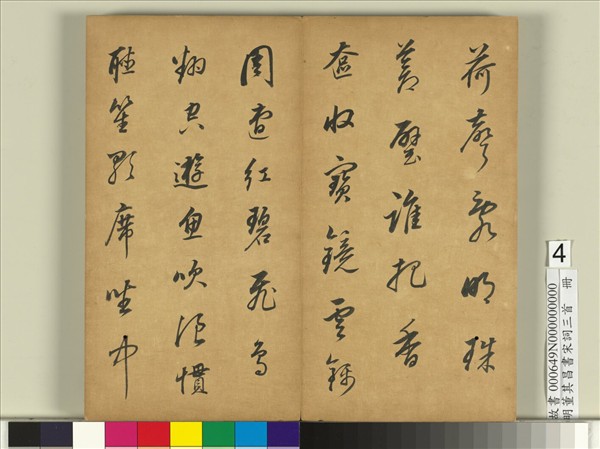 荷聲亂明珠
蒼璧誰把香
奩收寶鏡雲錦
周遭紅碧飛鳥
翻空遊魚吹浪慣
聽笙歌席坐中
4
故書 000649N000000000
明董其昌書宋詞三首 冊